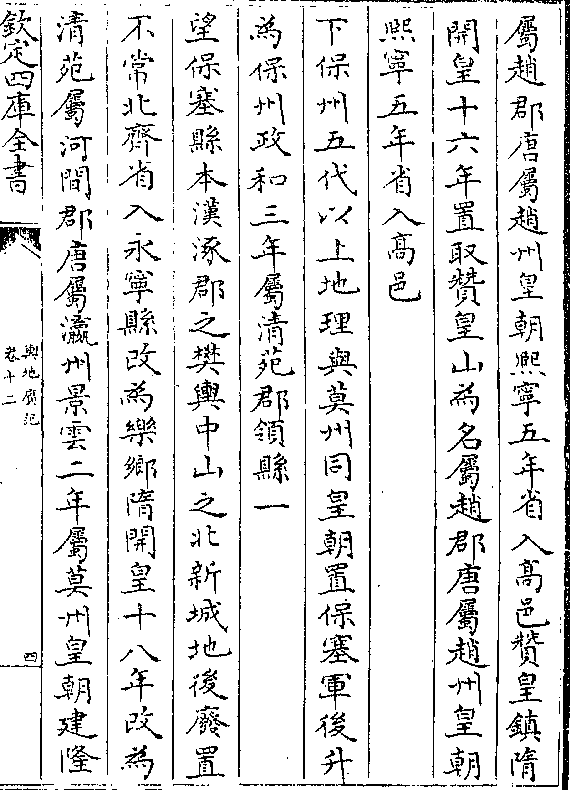 屬趙郡唐屬趙州皇朝熙寧五年省入高邑贊皇鎮隋
開皇十六年置取贊皇山為名屬趙郡唐屬趙州皇朝
熙寧五年省入高邑
下保州五代以上地理與莫州同皇朝置保塞軍後升
為保州政和三年屬清苑郡領縣一
望保塞縣本漢涿郡之樊輿中山之北新城地後廢置
不常北齊省入永寧縣改為樂鄉隋開皇十八年改為
清苑屬河間郡唐屬瀛州景雲二年屬莫州皇朝建隆
欽定四庫全書
輿地廣記
卷十二
四